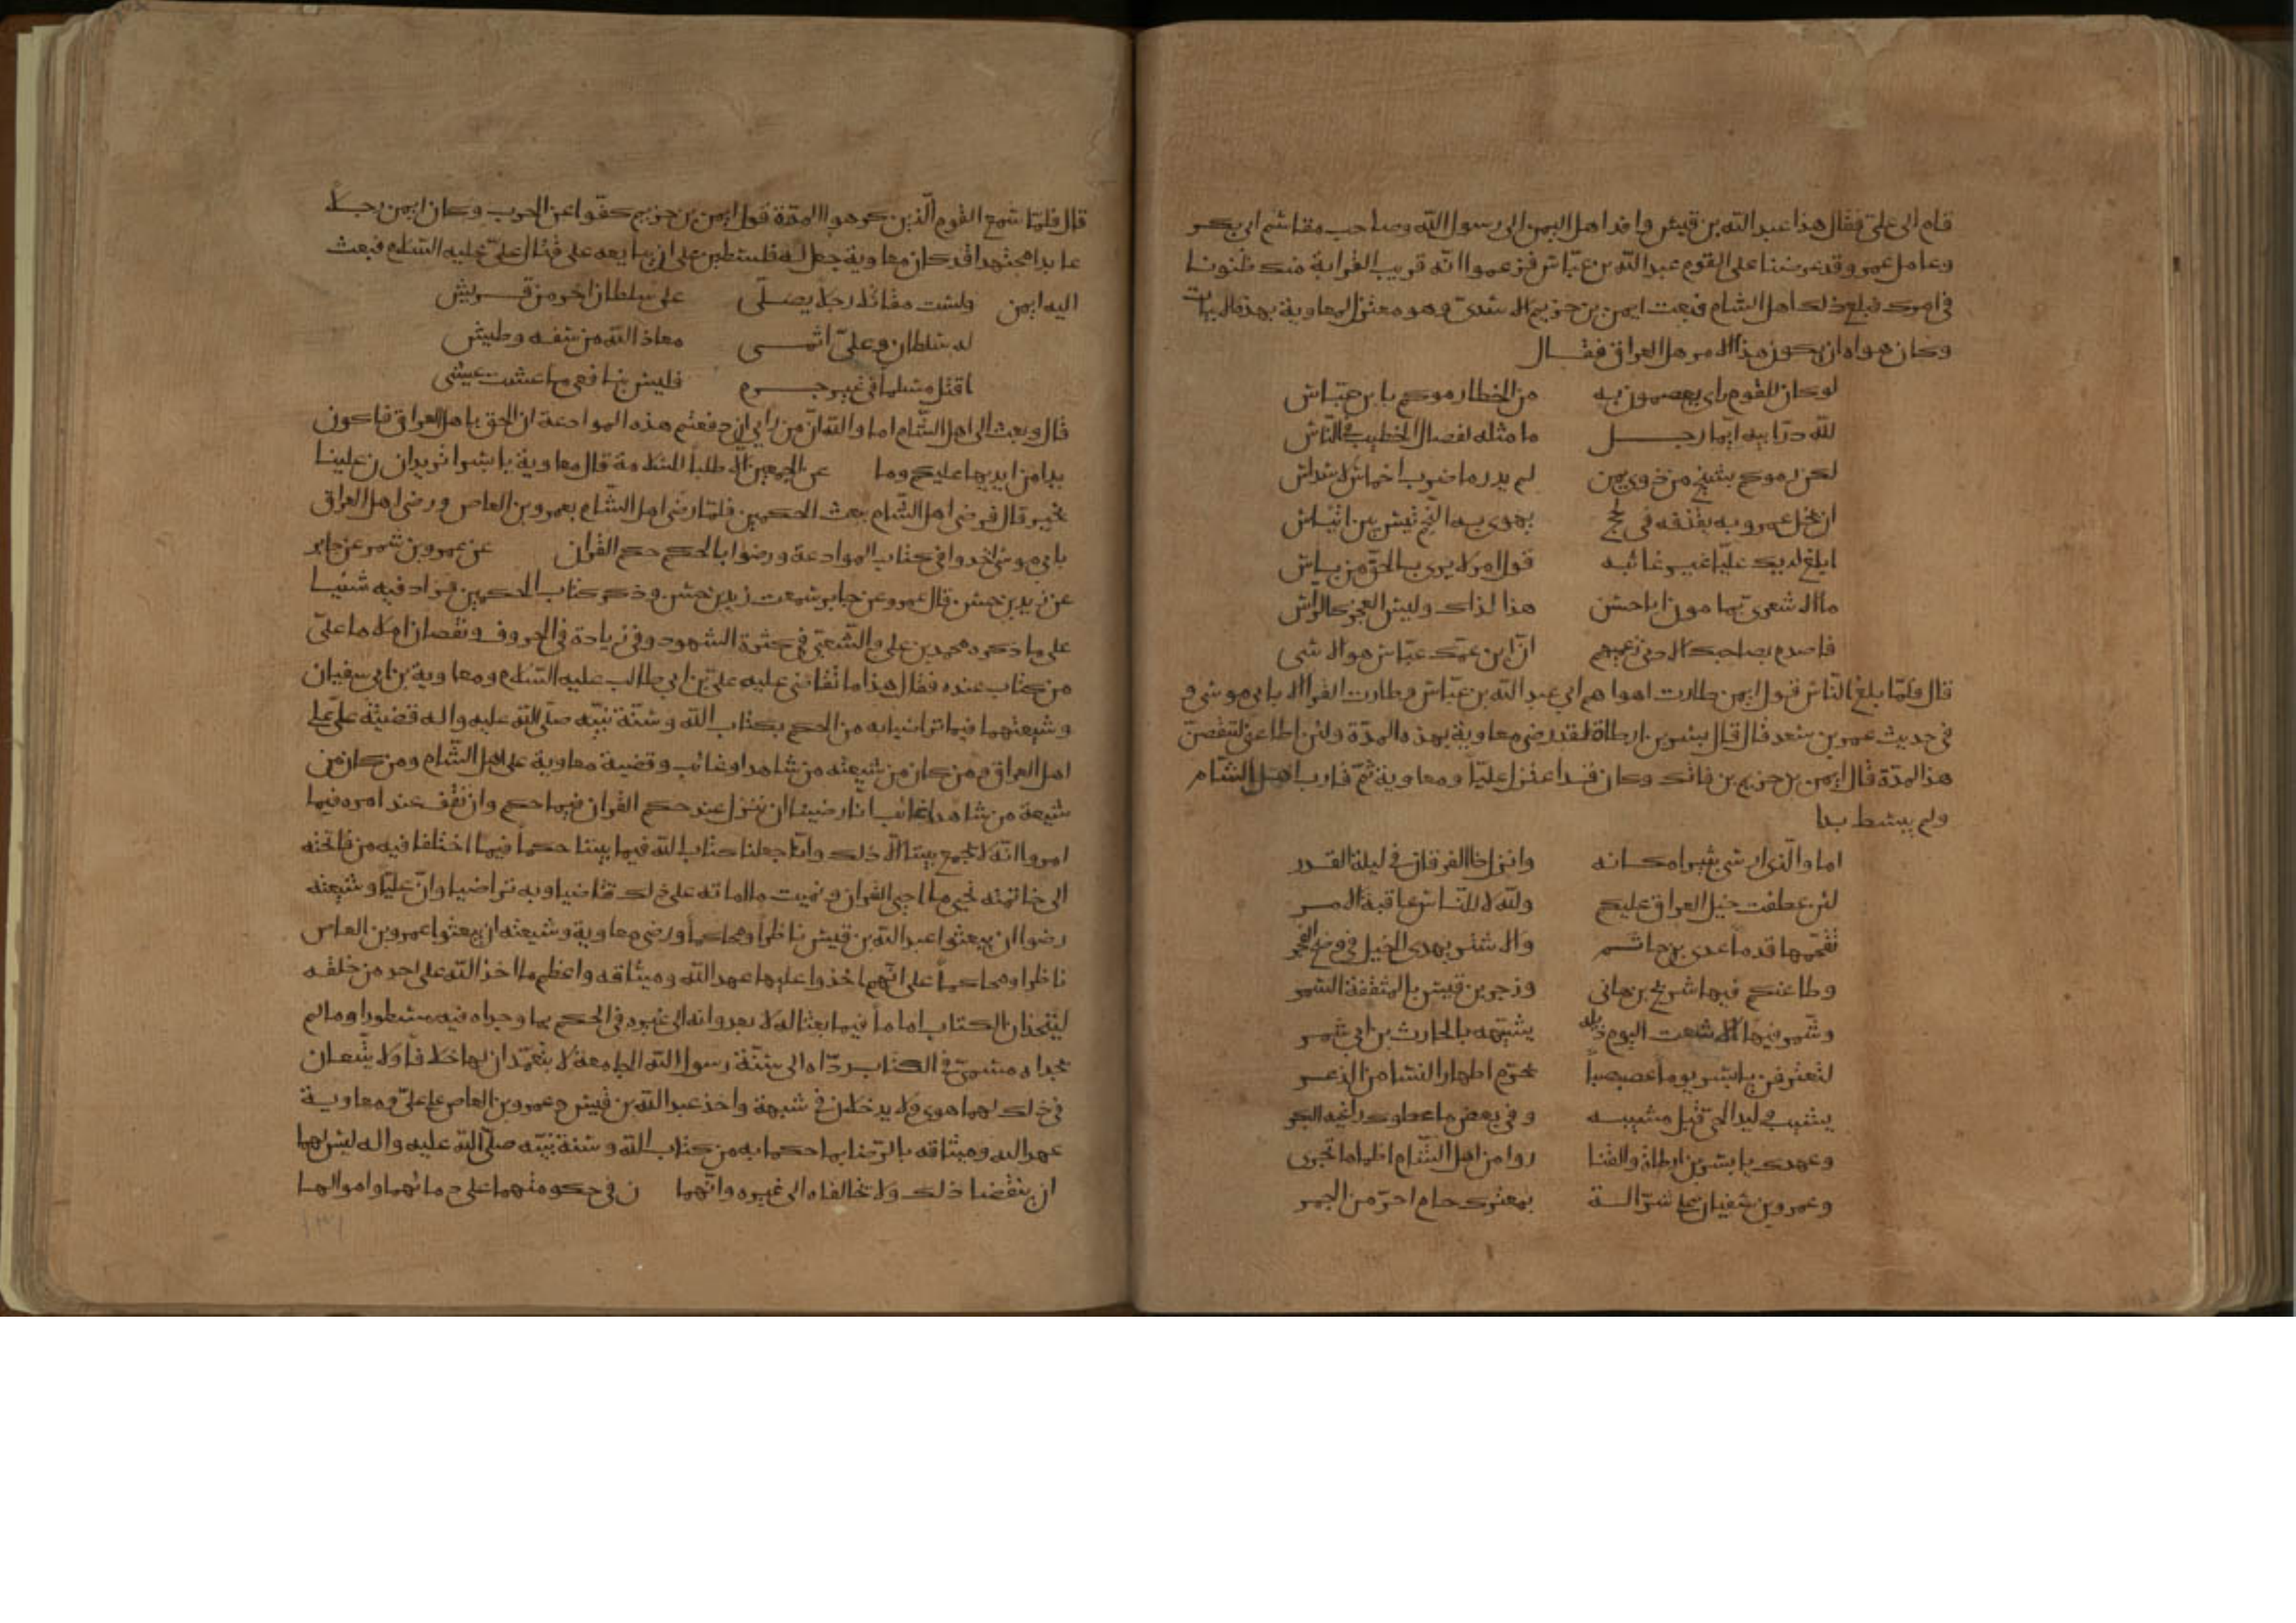 قام الى علىّ فقال هذا عبد الله بن قيس وافد اهل اليمن الى رسول الله وصاحب مقاسم ابى بكر
وعامل عمر وقد عرضنا على القوم عبد الله بن عبّاس فزعموا انّه قريب القرابة منك ظنونا
فى امرك فبلغ ذلك اهل الشام فبعث ايمن بن خزيم الاسدىّ وهو معتزل لمعاوية بهذه الابيات
وكان هواه ان يكون هذا الامر لاهل العراق فقال
لو كان للقوم راى يعصمون به من الخطا رموكم بابن عبّاس
لله درّ ابيه ايّما رجل ما مثله لفصال الخطب فى الناس
لكن رموكم بشيخ من ذوى يمن لم يدر ما ضرب اخماس لاسداس
ان يخل عمرو به يقذفه فى لجج يهوى به النجم تيس بين اتياس
ابلغ لديك عليّا غير عائبه قول امرء لا يرى بالحقّ من باس
ما الاشعرى بمامون ابا حسن هذا لذاك وليس العجز كالراس
فاصدم بصاحبك الادنى زعيمهم انّ ابن عمّك عبّاس هو الاسى
قال فلمّا بلغ النّاس قول ايمن طارت اهواهم الى عبد الله بن عبّاس وطارت القرا الا بابى موسى و
فى حديث عمر بن سعد قال قال بسر بن ارطاة لقد رضى معاوية بهذه المدّة ولئن اطاعنى لتنقضنّ
هذه المدّة قال ايمن بن خزيم بن فاتك وكان قد اعتزل عليّا ومعاوية ثمّ قارب اهل الشام
ولم يبسط يدا
اما والّذى ارسى ثبيرا مكانه وانزل ذا الفرقان فى ليلة القدر
لئن عطفت خيل العراق عليكم ولله لا للنّاس عاقبة الامر
تقحّمها قدما عدى بن حاتم والاشتر يهدى الخيل فى وضح الفجر
وطاعنكم فيها شريح بن هانى وزجر بن قيس بالمثقفة السمر
وشمّر فيها الاشعث اليوم ذيله يشبّهه بالحارث بن ابى شمر
لتعترفن يا بسر يوما عصبصبا يحرّم اطهار النسا من الذعر
يشيب وليد الحىّ قبل مشيبه وفى بعض ما اعطوك راغية البكر
وعهدك يا بسر بن ارطاة والقنا روا من اهل الشام اظماها تجرى
وعمرو بن سفيان على شرّ الة بمعترك حام احرّ من الجمر
قال فلمّا سمع القوم الّذين كرهوا المدّة قول ايمن بن خزيم كفّوا عن الحرب وكان ايمن رجلا
عابدا مجتهدا قد كان معاوية جعل له فلسطين على ان يبايعه على قتال علىّ عليه السّلم فبعث
اليه ايمن ولست مقاتلا رجلا يصلّى على سلطان اخر من قريش
له سلطانه وعلىّ اثمى معاذ الله من سفه وطيش
اقتل مسلما فى غير جرم فليس بنافعى ما عشت عيشى
قال وبعث الى اهل الشّام اما والله انّ من رايى ان دفعتم هذه الموادعة ان الحق باهل العراق فاكون
يدا من ايديها عليكم وما عن الجمعين الا طلبا للسلامة قال معاوية يا بسر اتريد ان تمن علينا
بخير قال فرضى اهل الشّام ببعث الحكمين فلمّا رضى اهل الشّام بعمرو بن العاص ورضى اهل العراق
بابى موسى اخذوا فى كتاب الموادعة ورضوا بالحكم حكم القران عن عمرو بن شمر عن جابر
عن زيد بن حسن قال عمرو عن جابر سمعت زيد بن حسن وذكر كتاب الحكمين فزاد فيه شيئا
على ما ذكره محمد بن على والشّعبىّ فى كثرة الشهود وفى زيادة فى الحروف ونقصان املاها علىّ
من كتاب عنده فقال هذا ما تقاضى عليه علىّ بن ابى طالب عليه السّلم ومعاوية بن ابى سفيان
وشيعتهما فيما تراضيا به من الحكم بكتاب الله وسنّة نبيّه صلّى الله عليه واله قضيّة علىّ على
اهل العراق ومن كان من شيعته من شاهد او غائب وقضية معاوية على اهل الشّام ومن كان من
شيعة من شاهد او غائب انّا رضينا ان ننزل عند حكم القران فيما حكم وان نقف عند امره فيما
امر وانّه لا يجمع بيننا الّا ذلك وانّا جعلنا كتاب الله فيما بيننا حكما فيما اختلفنا فيه من فاتحته
الى خاتمته نحيى ما احيى القران ونميت ما اماته على ذلك تقاضيا وبه تراضيا وانّ عليّا وشيعته
رضوا ان يبعثوا عبد الله بن قيس ناظرا ومحاكما ورضى معاوية وشيعته ان يبعثوا عمرو بن العاص
ناظرا ومحاكما على انّهم اخذوا عليهما عهد الله وميثاقه واعظم ما اخذ الله على احد من خلقه
ليتّخذان الكتاب اماما فيما بعثا له لا يعدوانه الى غيره فى الحكم بما وجداه فيه مسطورا وما لم
يجداه مسمىّ فى الكتاب ردّاه الى سنّة رسول الله الجامعة لا يتعمّدان لها خلافا ولا يتّبعان
فى ذلك لهما هوى ولا يدخلان فى شبهة واخذ عبد الله بن قيس وعمرو بن العاص على علىّ ومعاوية
عهد الله وميثاقه بالرّضا بما حكما به من كتاب الله وسنة نبيّه صلّى الله عليه واله ليس لهما
ان ينقضا ذلك ولا يخالفاه الى غيره وانّهما ن فى حكومتهما على دمائهما واموالهما